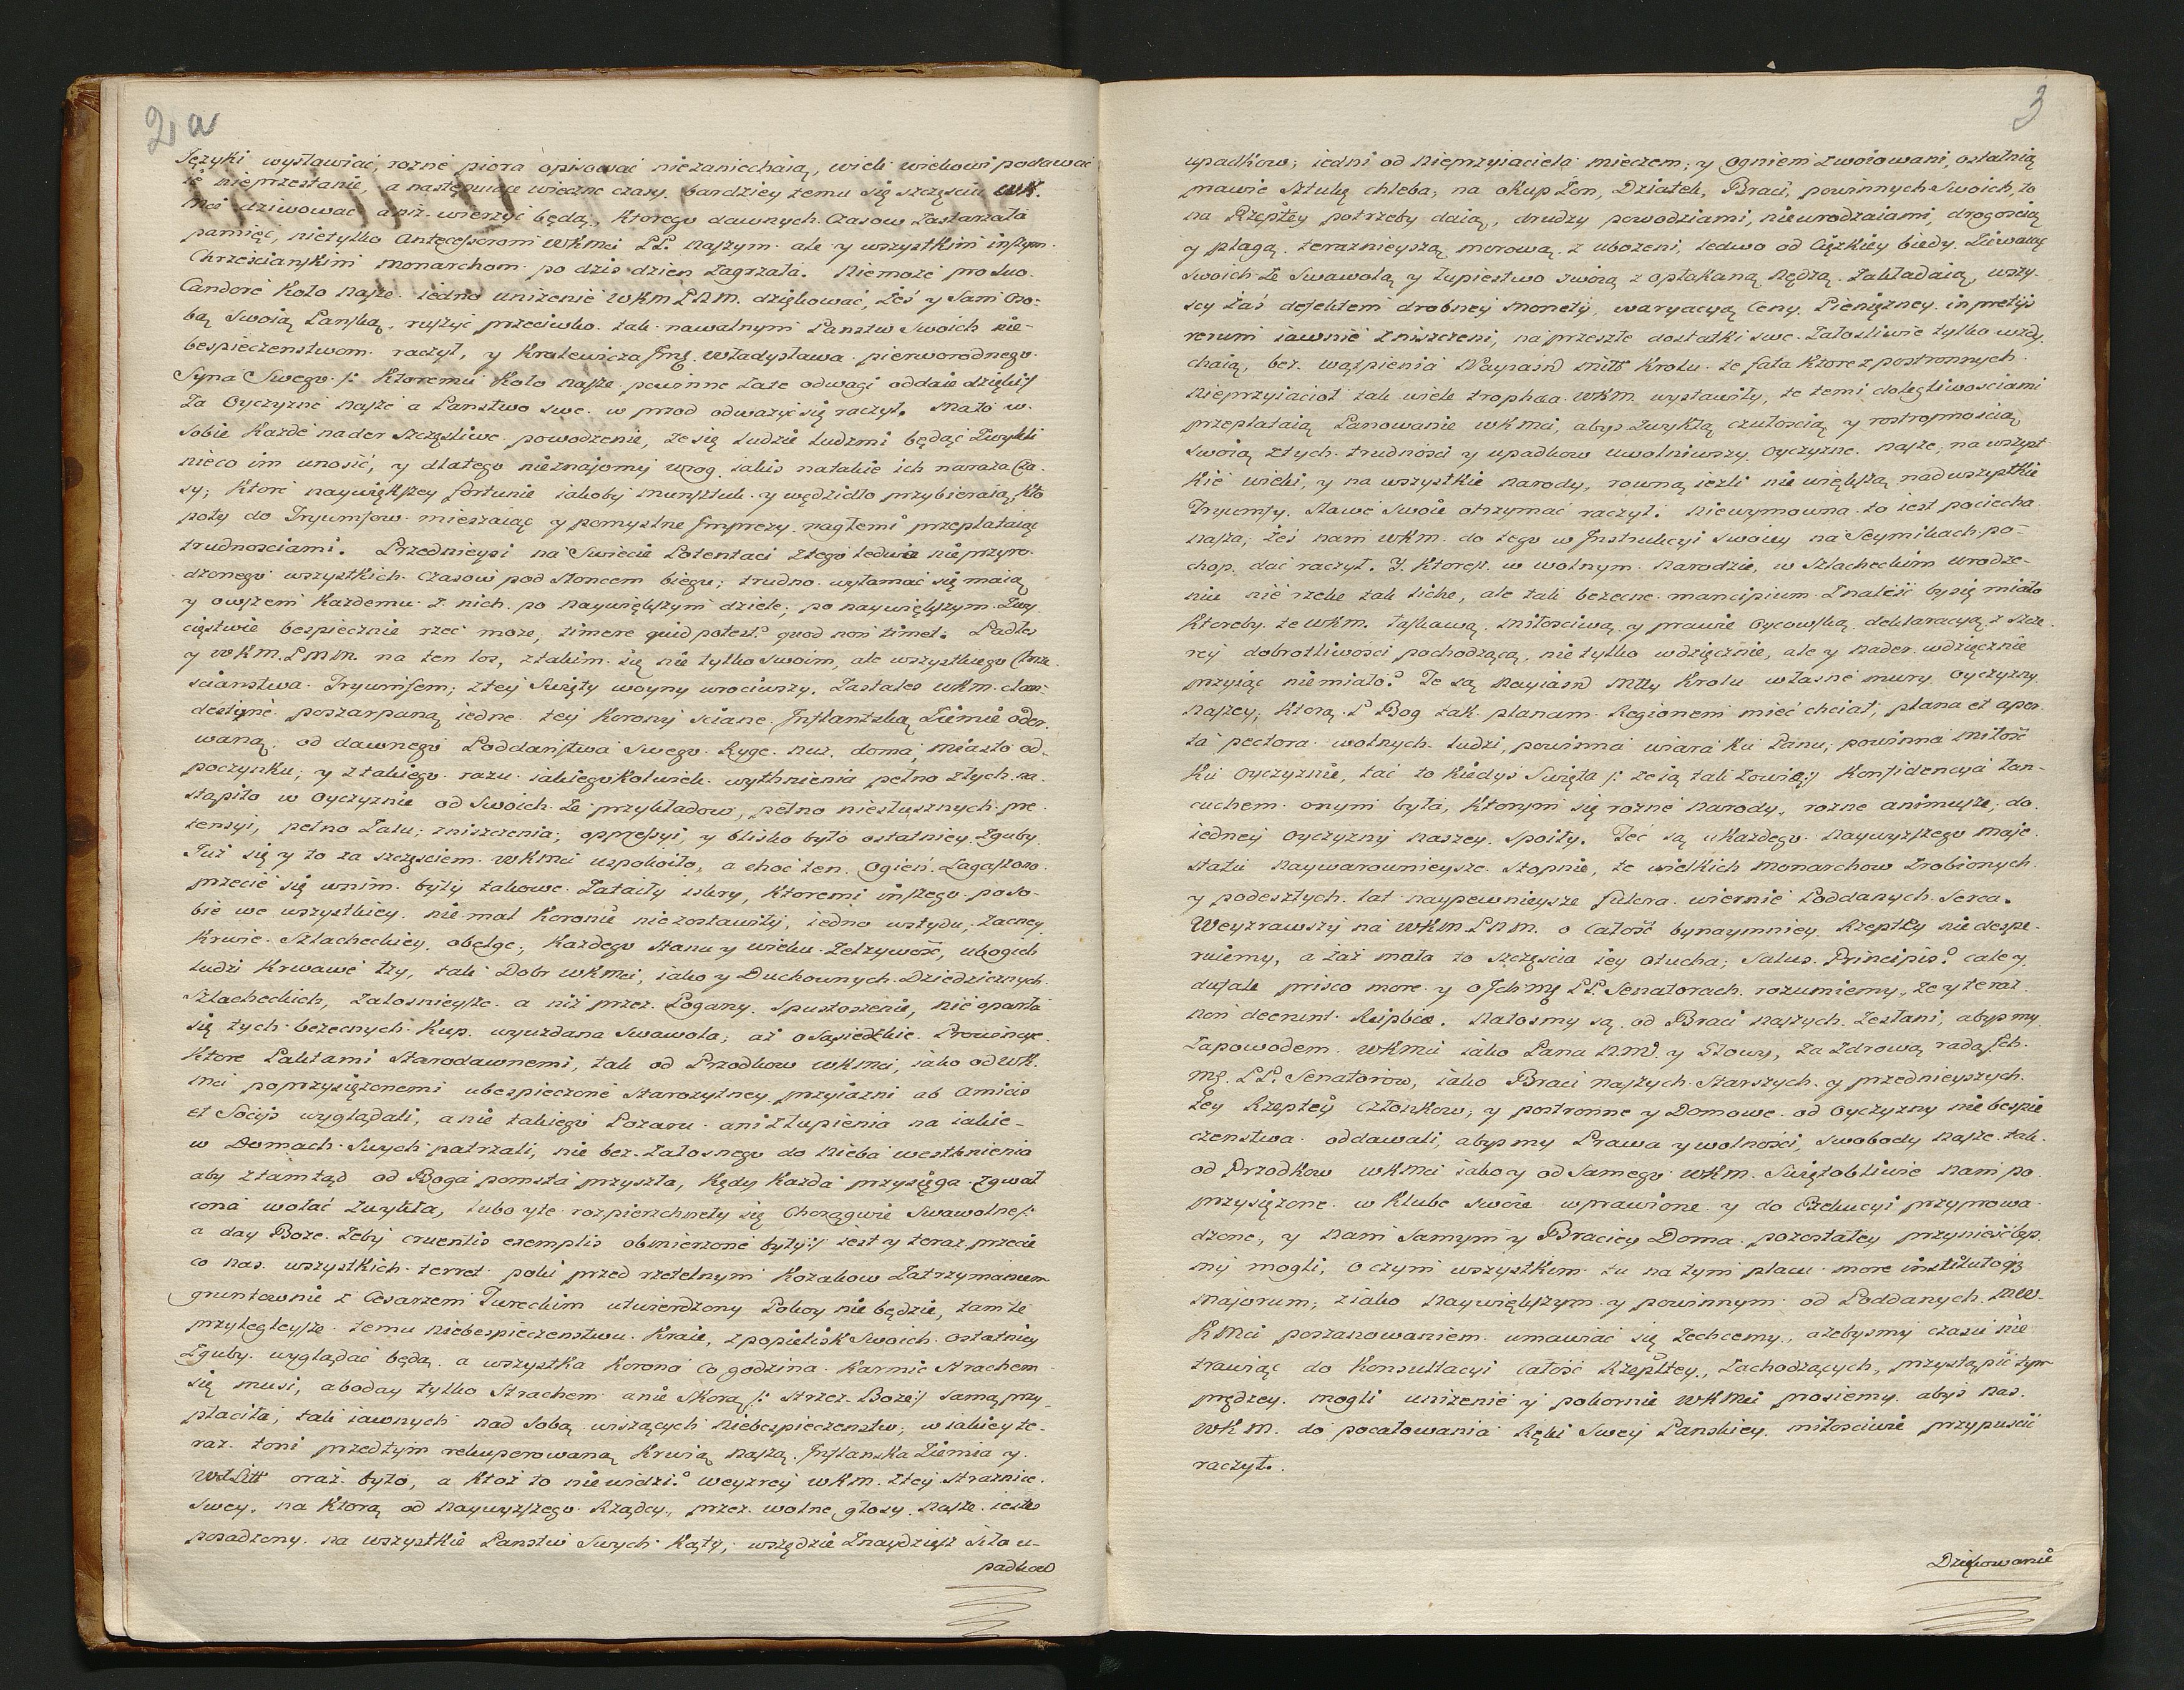 2 a
Języki wystawiać, rozne piora opisować niezaniechaią, wiek wiekowi podawać
ie nieprzestanie, a następuiące wieczne czasy bardziey temu się szczęściu WK.
Mci dziwować aniż wierzyć będą, ktorego dawnych czasow zastarzała
pamięć, nietylko Antecessorom WKMci PP. naszym ale y wszystkim inszym
Chrześcianskim Monarchom po dziś dzien zagrzała. Niemoże pro suo
Candore Koło nasze iedno uniżenie WKM PNM. dziękować, żeś y sam oso-
bą swoią Panską, ruszyć przeciwko tak nawalnym Panstw swoich nie-
bespieczenstwom raczył, y Krolewicza Jmę Władysława pierworodnego
Syna Swego /: Ktoremu Koło nasze powinne zate odwagi oddaie dzięki:/
za Oyczyznę naszę a Panstwo swe w przod odważyć się raczył. Mało w
sobie każde nader szczęśliwe powodzenie, ze się ludzie ludzmi będąc zwykli
nieco im unosić, y dlatego nieznajomy wrog iakiś natakie ich naraża cza-
sy; ktore naywiększey fortunie iakoby munsztuk y wędzidło przybieraią, kło
poty do Tryumfow mieszaiąc y pomyslne Imprezy nagłemi przeplataiąc
trudnosciami. Przednieysi na Swiecie Potentaci ztego ledwie nieprzyro-
dzonego wszystkich czasow pod słoncem biegu; trudno wyłamać się maią
y owszem każdemu z nich po naywiększym dziele; po naywiększym zwy
cięstwie bespiecznie rzec może, timere quid potest? quod non timet. Padłeś
y WKM. PNM. na ten los, ztakim się nie tylko swoim, ale wszystkiego Chrze-
scianstwa Tryumfem; ztey Swięty woyny wrociwszy. Zastałeś WKM. clan-
destyne poszarpaną iedne tey Korony sciane Inflantską Ziemie oder-
waną, od dawnego Poddanstwa Swego Rygę. Nuż doma, miasto od-
poczynku; y ztakiego razu iakiegokolwiek wytchnienia pełno złych na-
stąpiło w Oyczyznie od Swoich że przykładow, pełno niesłusznych pre
tensyi, pełno żalu; zniszczenia; oppressyi y blisko było ostatniey zguby.
Już się y to za szczęsciem WKMci uspokoiło, a choć ten Ogień zagaszono
przecie się wnim były takowe zataiły iskry, ktoremi inszego poso-
bie we wszystkiey niemal Koronie niezostawiły, iedno wstydu zacney
Krwie Szlacheckiey obelgę, każdego stanu y wieku zelżywość, ubogich
ludzi krwawe łzy, tak Dobr WKMci, iako y Duchownych Dziedzicznych
Szlacheckich, żałosnieysze a niż przez Pogany spustoszenie, nie oparła
się tych bezecnych kup wyuzdana swawola; aż o sąsiedzkie Prowincye
ktore Paktami starodawnemi, tak od Przodkow WKMci, iako od WK.
Mci poprzysiężonemi ubespieczone starożytney przyiazni ab amicis
et Socijs wyglądali, a nie takiego pożaru ani złupienia na iakie
w Domach swych patrzali, nie bez żałosnego do nieba westhnienia
aby ztamtąd od Boga pomsta przyszła, kędy każda przysięga zgwał
cona wołać zwykła, lubo yte rozpierzchnęły się Chorągwie Swawolne /:
a day Boże żeby cruentis exemplis obmierzone były:/ iest y teraz przecie
co nas wszystkich terret poki przed rzetelnym Kozakow zatrzymaniem
gruntownie z Cesarzem Tureckim utwierdzony Pokoy nie będzie, tamte
przylegleysze temu niebespieczenstwu kraie, zpopielisk Swoich ostatniey
zguby wyglądać będą, a wszystka Korona co godzina karmić strachem
się musi, aboday tylko strachem anie skorą /: strzeż Boże:/ samą przy
płaciła, tak iawnych nad sobą wiszących niebespieczenstw; w iakiey te-
raz toni przedtym rekuperowaną krwią naszą Inflanska Ziemia y
WXLitt oraz było, a ktoż to nie widzi? weyrzey WKM. ztey strażnice
swey, na ktorą od naywyższego Rządcy, przez wolne głosy nasze iestes
posadzony na wszystkie Panstw Swych kąty; wszędzie znaydziesz siła u-
padkow
3
upadkow; iedni od nieprzyiaciela mieczem; y ogniem zwoiowani, ostatnią
prawie sztukę chleba; na okup żon, Dziatek, Braci, powinnych swoich, to
na Rzepltey potrzeby daią, drudzy powodziami, nieurodzaiami drogością
y plagą terazniejszą morową z ubożeni, ledwo od ciężkiey biedy
swoich że swawolą y łupiestwo swoią z opłakaną nędzą zakładaią, wszy-
scy zaś defektem drobney monety, waryacyą ceny Pieniężney in pretijs
rerum iawnie zniszczeni, na przeszłe dostatki swe żałosliwie tylko wzdy
chaią, bez wątpienia Nayiasn Miłł Krolu te fata ktore z postronnych
nieprzyiacioł tak wiele trophaea WKM wystawiły, te temi dolegliwosciami
przeplataią Panowanie WKMci, abyś zwykłą czułością y rostropnością
swoią ztych trudności y upadkow uwolniwszy Oyczyzne nasze; na wszyst
kie wieki, y na wszystkie narody, rowną iezli nie większą nad wszystkie
Tryumfy sławe swoie otrzymać raczył. Niewymowna to iest pociecha
nasza; żeś nam WKM. do tego w Instrukcyi swoiey na Seymikach po-
chop dać raczył. Y ktoresz w wolnym narodzie, w Szlacheckim urodze-
niu nie rzekę tak liche, ale tak bezecne mancipium znaleść bysię miało
ktoreby te WKM. łaskawą miłościwą y prawie oycowską deklaracyą z szcze-
rey dobrotliwosci pochodzącą, nie tylko wdzięcznie, ale y nader wdzięcznie
przyiąć niemiało? Te są Nayiasn Mlły Krolu własne mury Oyczyzny
naszey, ktorą P Bog tak planam Regionem mieć chciał, plana et aper-
ta pectora wolnych ludzi, powinna wiara ku Panu; powinna miłość
ku Oyczyznie, tać to kiedyś święta /: że ią tak zowię:/ Konfidencya łan-
cuchem onym była, ktorym się rozne narody, rozne animusze; do
iedney Oyczyzny naszey spoiły. Teć są ukażdego naywyższego maje-
statu naywarownieysze stopnie, te wielkich Monarchow zrobionych
y podeszłych lat naypewnieysze fulcra wiernie Poddanych Serca.
Weyzrawszy na WKM PNM. o całość bynaymniey Rzeptlty nie despe-
ruiemy, a zaż mała to szczęscia iey otucha; Salus Principis? cale y
dufale prisco more y o Ichmę PP. Senatorach rozumiemy, że y teraz
non deerunt Reipbcae. Nałosmy są od Braci naszych zesłani, abysmy
zapowodem WKMci iako Pana NMP. y Głowy, za zdrową radą Ich-
mę. PP. Senatorow, iako Braci naszych starszych y przednieyszych
tey Rzepltey członkow; y postronne y Domowe od Oyczyzny niebespie
czenstwa oddawali, abysmy Prawa y wolności, swobody nasze tak
od Przodkow WKMci iako y od Samego WKM. Swiętobliwie nam po
przysiężone w klube swoie wprawione y do Exekucyi przyprowa
dzone, y nam samym y Braciey Doma pozostałey przynieśćbys
my mogli, o czym wszystkim tu na tym placu more institutoq3
majorum, ziako naywiększym y powinnym od Poddanych W
KMci poszanowaniem umawiać się zechcemy, ażebysmy czasu nie
trawiąc do Konsultacyi całość Rzepltey, zachodzących, przystąpić tym
prędzey mogli uniżenie y pokornie WKMci prosiemy abyś nas
WKM. do pocałowania Ręki Swey Panskiey miłosciwie przypuscić
raczył.
Dziękowanie